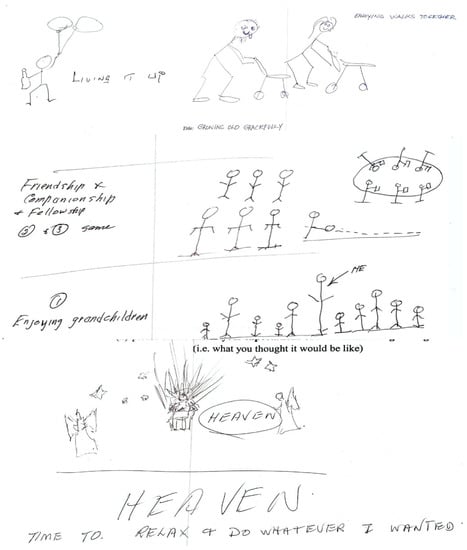 ENJOYING WALKS TOGETHER
LIVING IT UP
GROWING OLD GRACEFULLY
Friendship &
Companionship
& Fellowship
② & ③ same
ME
①
Enjoying grandchildren
(i.e. what you thought it would be like)
HEAVEN
HEAVEN.
TIME TO. RELAX & DO WHATEVER I WANTED.